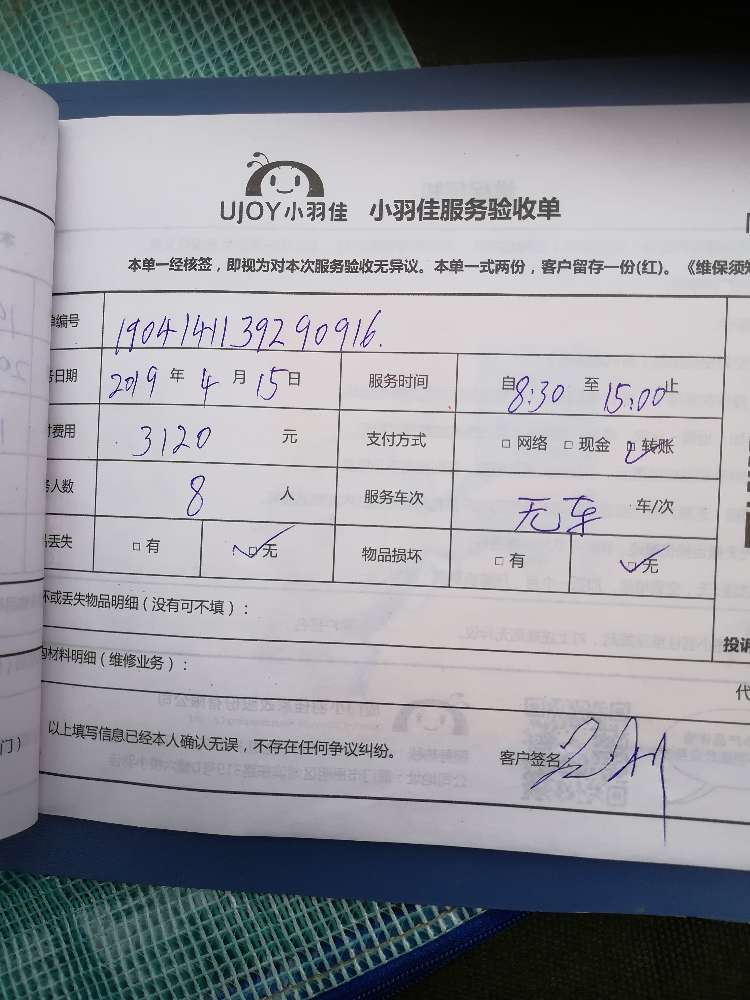 UJOY小羽佳 小羽佳服务验收单
本单一经核签，即视为对本次服务验收无异议。本单一式两份，客户留存一份(红)。《维保须知
单编号 1904141139290916.
务日期 2019 年 4 月 15 日 服务时间 自 8:30 至 15:00 止
付费用 3120 元 支付方式 □ 网络 □ 现金 ☑ 转账
务人数 8 人 服务车次 无车 车/次
品丢失 □ 有 ☑ 无 物品损坏 □ 有 ☑ 无
坏或丢失物品明细（没有可不填）：
投诉
购材料明细（维修业务）：
代
以上填写信息已经本人确认无误，不存在任何争议纠纷。 客户签名
门）